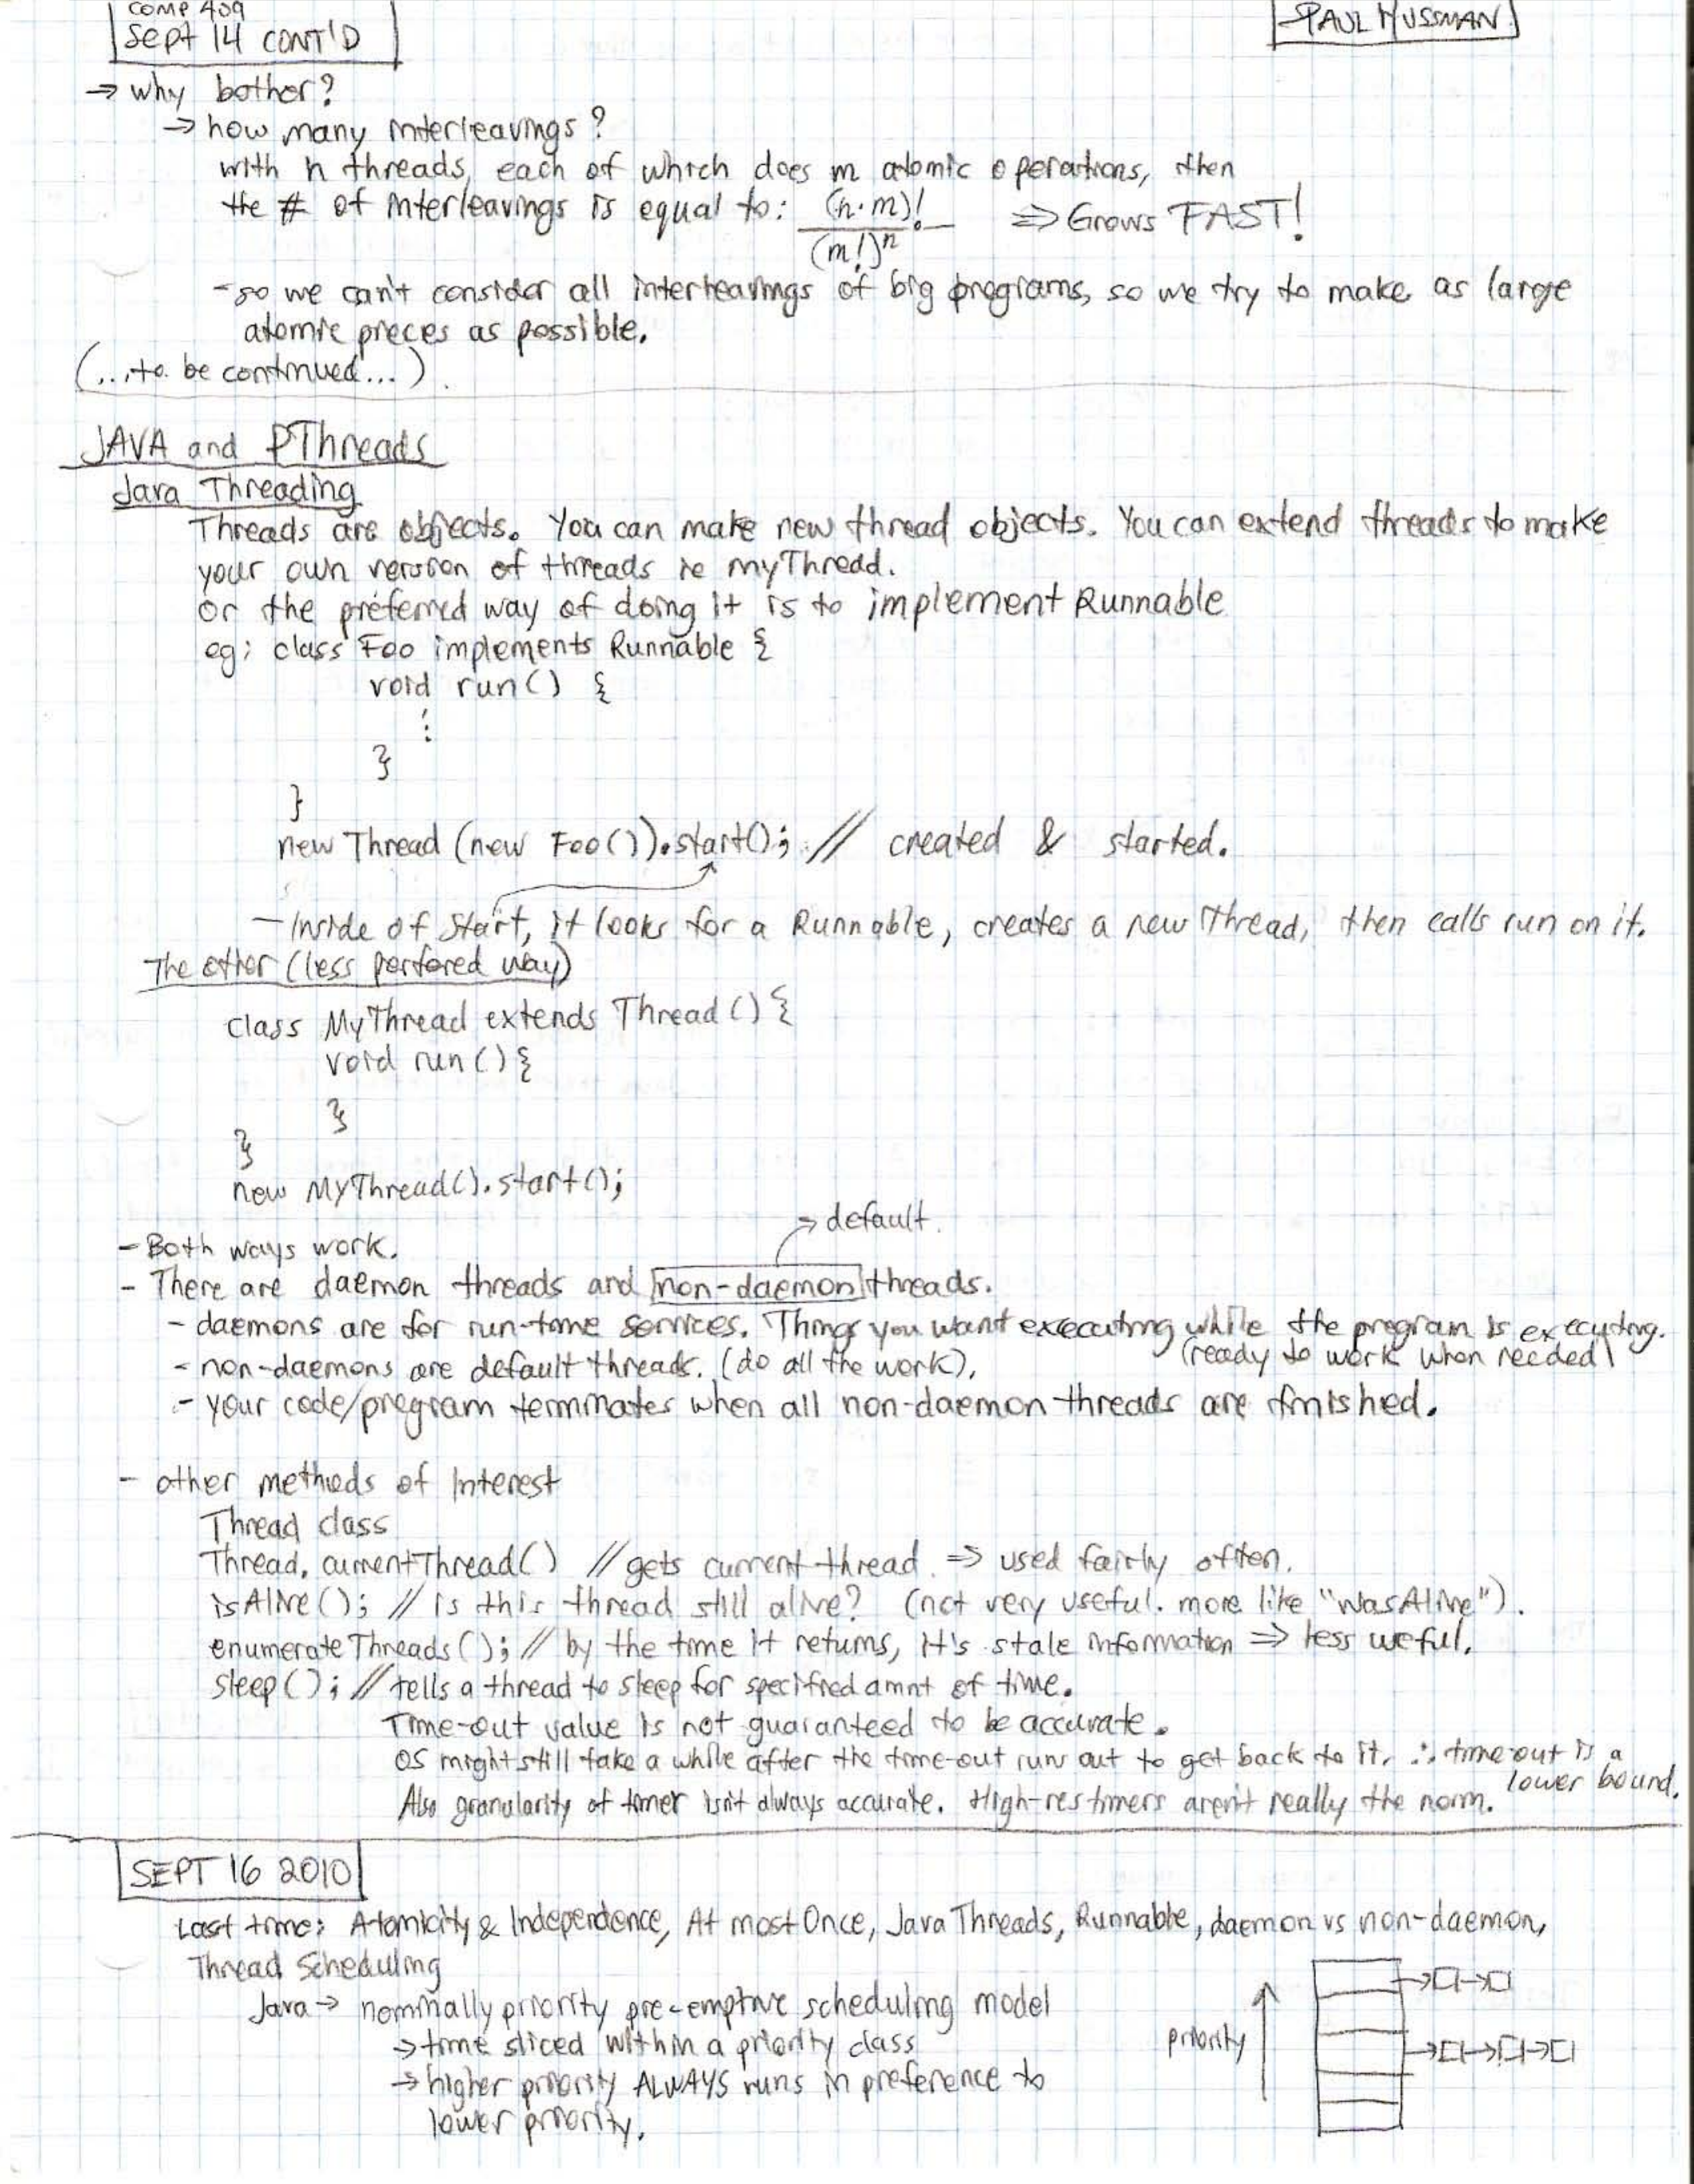 COMP 409
Sept 14 CONT'D
PAUL HUSSMAN
→ why bother?
→ how many interleavings?
with n threads, each of which does m atomic operations, then
the # of interleavings is equal to: (n·m)! / (m!)^n ⇒ Grows FAST!
- so we can't consider all interleavings of big programs, so we try to make as large
atomic pieces as possible.
(...to be continued...)
JAVA and PThreads
Java Threading
Threads are objects. You can make new thread objects. You can extend threads to make
your own version of threads ie myThread.
or the preferred way of doing it is to implement Runnable
eg: class Foo implements Runnable {
void run() {
⋮
}
}
new Thread (new Foo()).start(); // created & started.
- Inside of start, it looks for a Runnable, creates a new Thread, then calls run on it.
The other (less perfered way)
class MyThread extends Thread () {
void run () {
}
}
new MyThread().start();
→ default.
- Both ways work.
- There are daemon threads and non-daemon threads.
- daemons are for run-time services. Things you want executing while the program is executing.
(ready to work when needed)
- non-daemons are default threads. (do all the work).
- your code/program terminates when all non-daemon threads are finished.
- other methods of Interest
Thread class
Thread.currentThread() // gets current thread. ⇒ used fairly often.
isAlive(); // is this thread still alive? (not very useful. more like "wasAlive").
enumerateThreads(); // by the time it returns, it's stale information ⇒ less useful.
sleep(); // tells a thread to sleep for specified amnt of time.
Time-out value is not guaranteed to be accurate.
OS might still take a while after the time-out runs out to get back to it, ∴ timeout is a
lower bound.
Also granularity of timer isn't always accurate. High-res timers aren't really the norm.
SEPT 16 2010
Last time: Atomicity & Independence, At most Once, Java Threads, Runnable, daemon vs non-daemon,
Thread Scheduling
Java → nominally priority pre-emptive scheduling model
→ time sliced within a priority class
priority
→ higher priority ALWAYS runs in preference to
lower priority.